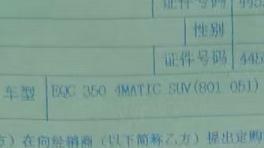 证件号码 445
性别
证件号码 445
车型 EQC 350 4MATIC SUV(801 051)
方）在向经销商（以下简称乙方）提出定购